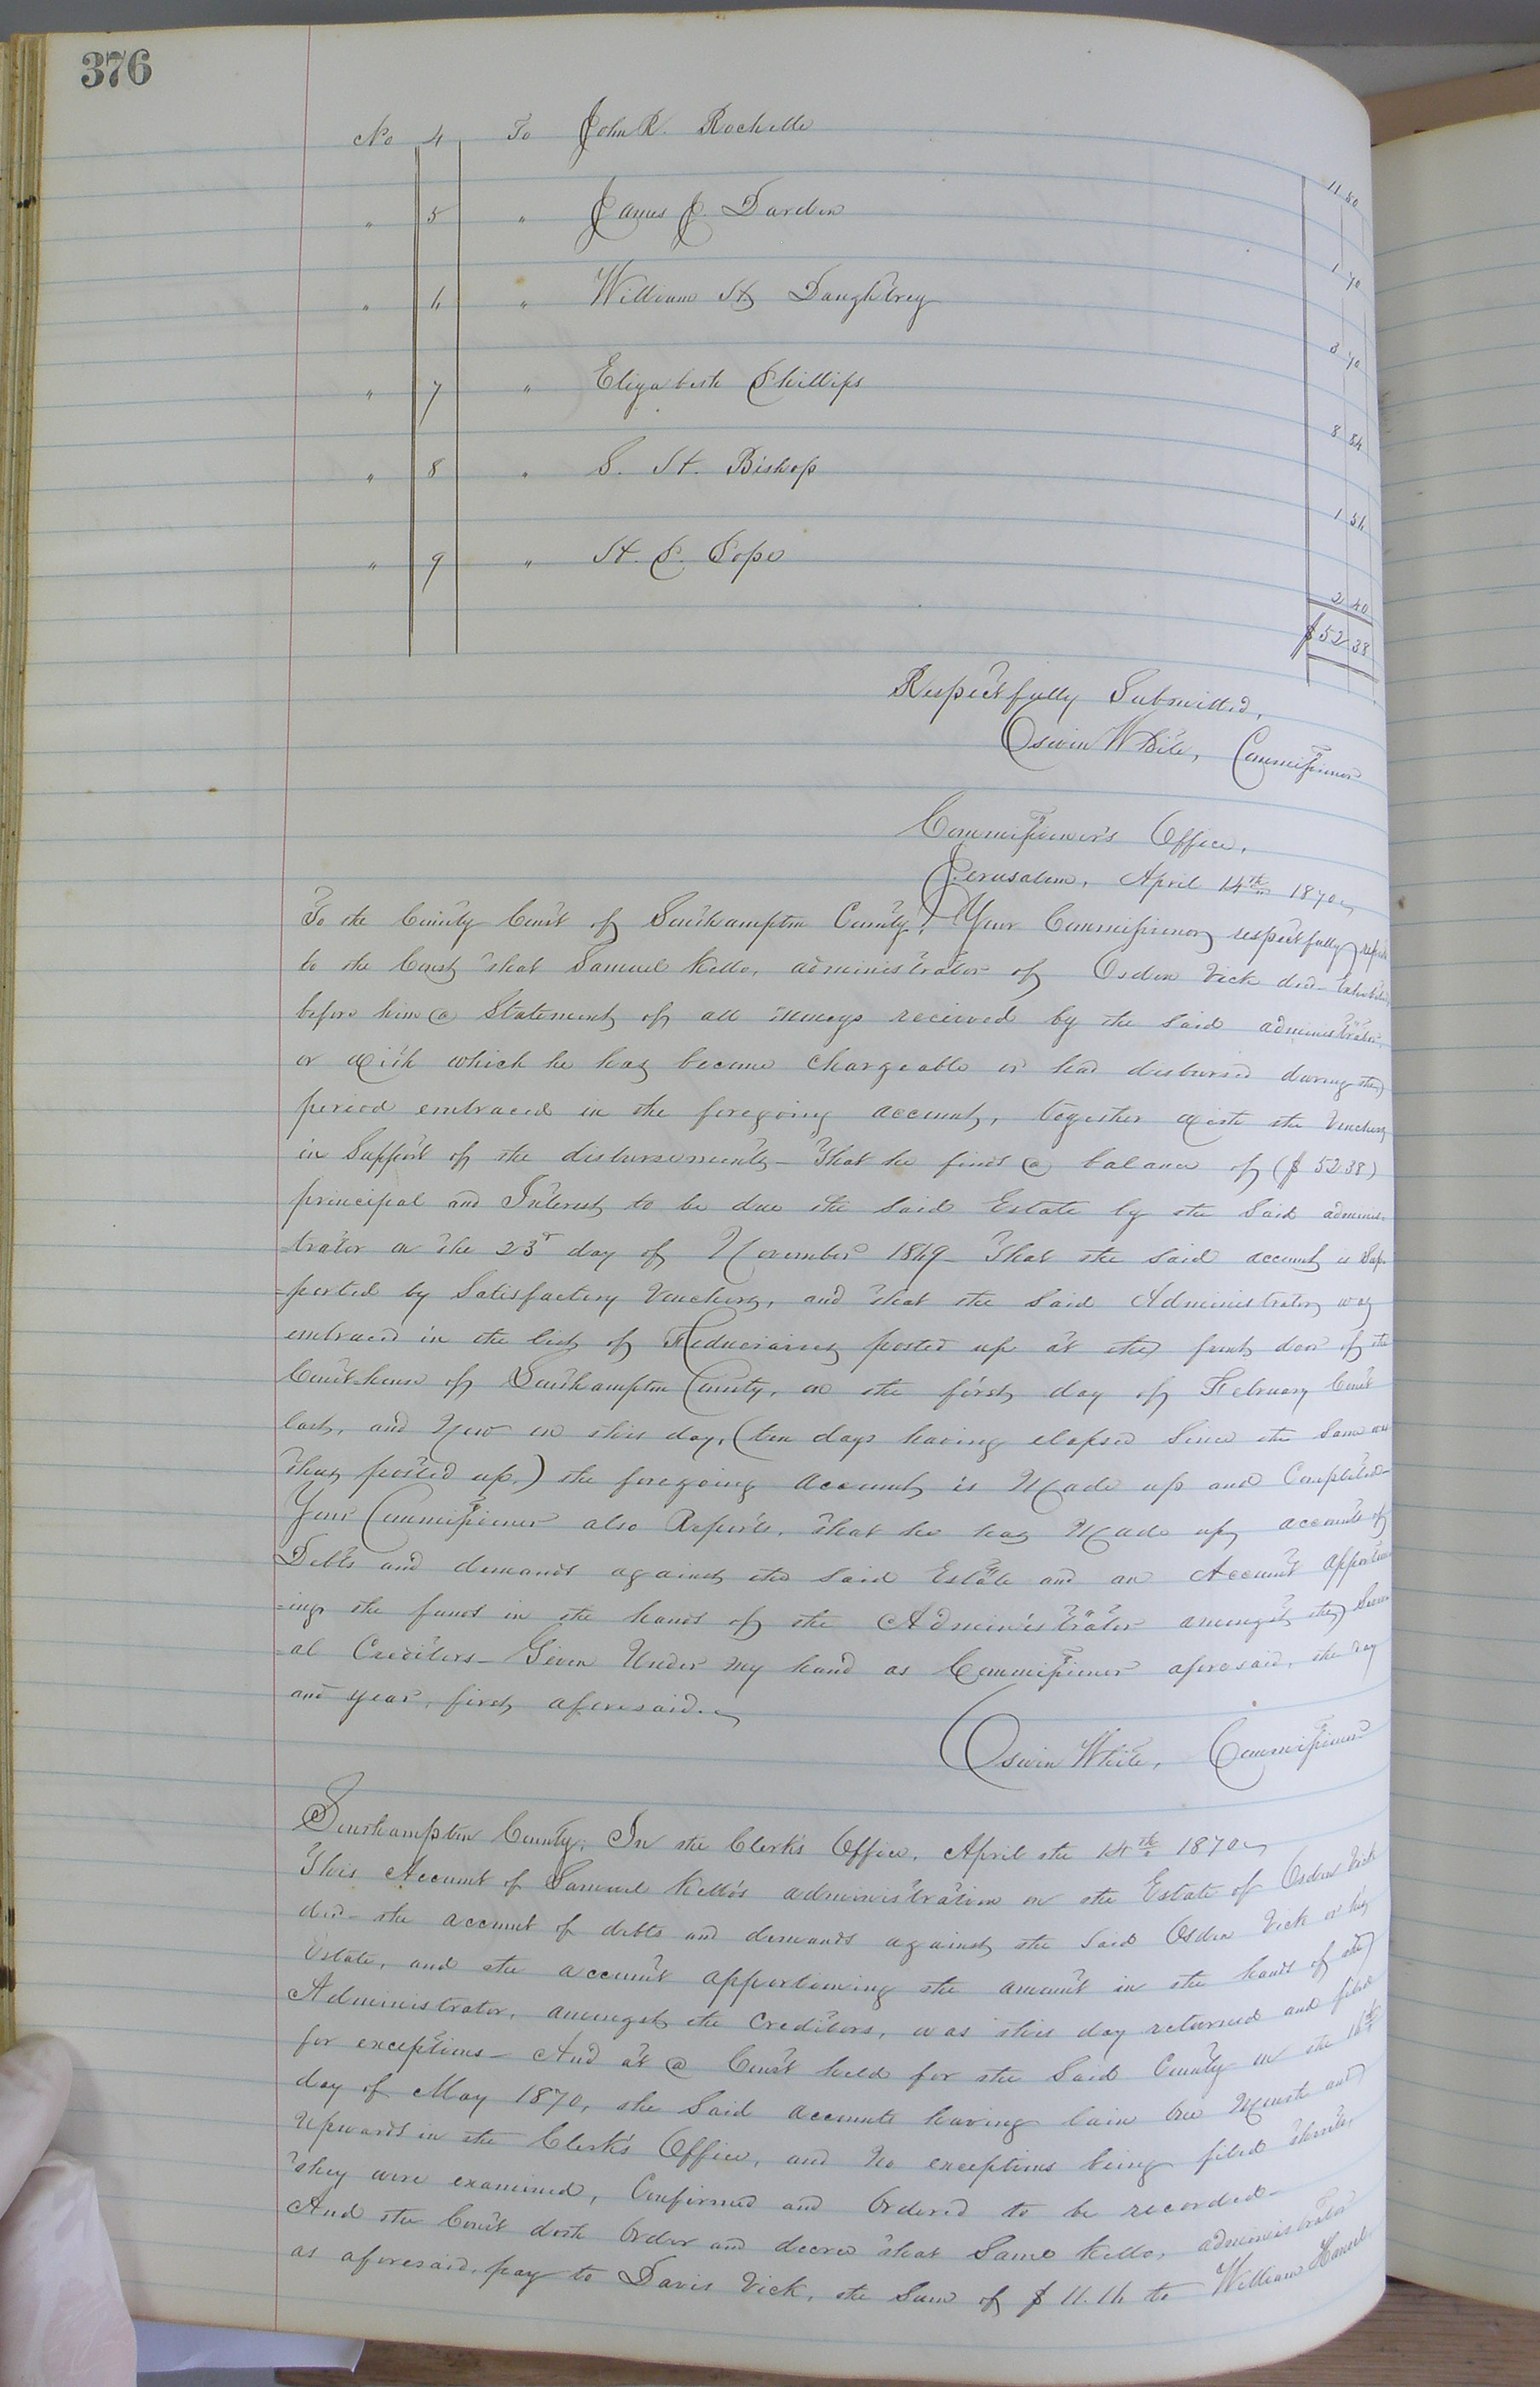 376
No 4 To John R. Rochelle 11 50
" 5 " James J. Darden 1 70
" 6 " William H. Daughtrey 3 70
" 7 " Elizabeth Phillips 8 84
" 8 " S. H. Bishop 1 56
" 9 " H. P. Pope 2 40
$52 38
Respectfully Submitted,
Oswin White, Commissioner
Commissioner's Office,
Jerusalem, April 14th 1870
To the County Court of Southampton County! Your Commissioner respectfully reports
to the Court that Samuel Kello, administrator of Osden Vick decd Exhibited
before him a Statement of all moneys received by the said administrator,
or with which he has become chargeable or had disbursed during the
period embraced in the foregoing account, together with the Vouchers
in Support of the disbursements - That he finds a balance of ($52 38)
principal and Interest to be due the said Estate by the said adminis-
-trator on the 23d day of November 1869 - That the said account is Sup-
-ported by Satisfactory Vouchers, and that the said Administrator was
embraced in the list of Fiduciaries posted up at the front door of the
Court-house of Southampton County, on the first day of February Court
last, and Now on this day, (ten days having elapsed Since the Same was
thus posted up,) the foregoing account is Made up and Completed -
Your Commissioner also Reports, that he has Made up accounts of
Debts and demands against the said Estate and an Account apportion-
-ing the funds in the hands of the Administrator amongst the Sever-
-al Creditors - Given Under my hand as Commissioner aforesaid, the day
and year, first aforesaid.
Oswin White, Commissioner
Southampton County; In the Clerk's Office, April the 14th 1870
This Account of Samuel Kello's administration on the Estate of Osden Vick
decd - the account of debts and demands against the said Osden Vick or his
Estate, and the account apportioning the amount in the hands of the
Administrator, amongst the Creditors, was this day returned and filed
for exceptions - And at a Court held for the Said County on the 16th
day of May 1870, the Said accounts having lain One Month and
Upwards in the Clerk's Office, and No exceptions being filed thereto,
they were examined, Confirmed and Ordered to be recorded -
And the Court doth Order and decree that Saml Kello, administrator
as aforesaid, pay to Davis Vick, the Sum of $11.16 to William